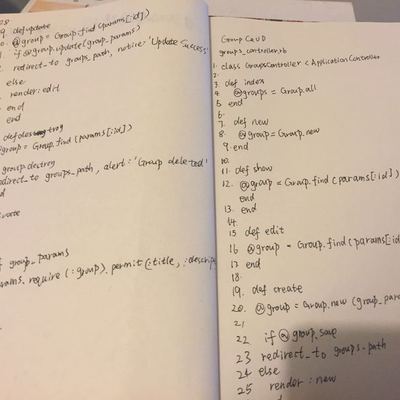 28
9. def update
0. @group = Group.find (params[:id])
1. if @group.update(group_params)
2. redirect_to groups_path, notice: 'Update Success'
else
render: edit
end
end
def destroy
group = Group.find (params[:id])
group.destroy
redirect_to groups_path, alert: 'Group deleted'
group_params
params.require (:group).permit(:title, :descrip
Group CRUD
groups_controller.rb
1. class GroupsController < ApplicationController
2.
3. def index
4. @groups = Group.all
5 end
6.
7. def new
8. @group = Group.new
9. end
10.
11. def show
12. @group = Group.find (params[:id])
end
13. end
14.
15 def edit
16 @group = Group.find (params[:id
17 end
18.
19. def create
20. @group = Group.new (group_para
21
22 if @group.save
23 redirect_to groups_path
24 else
25 render :new